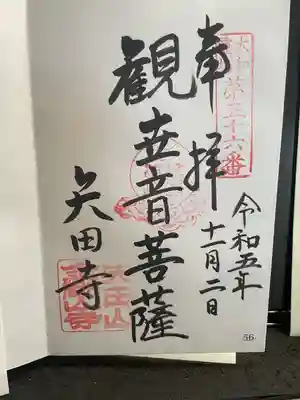 大和
第三十六番
奉拝
令和五年
十一月二日
観世音菩薩
矢田寺
56